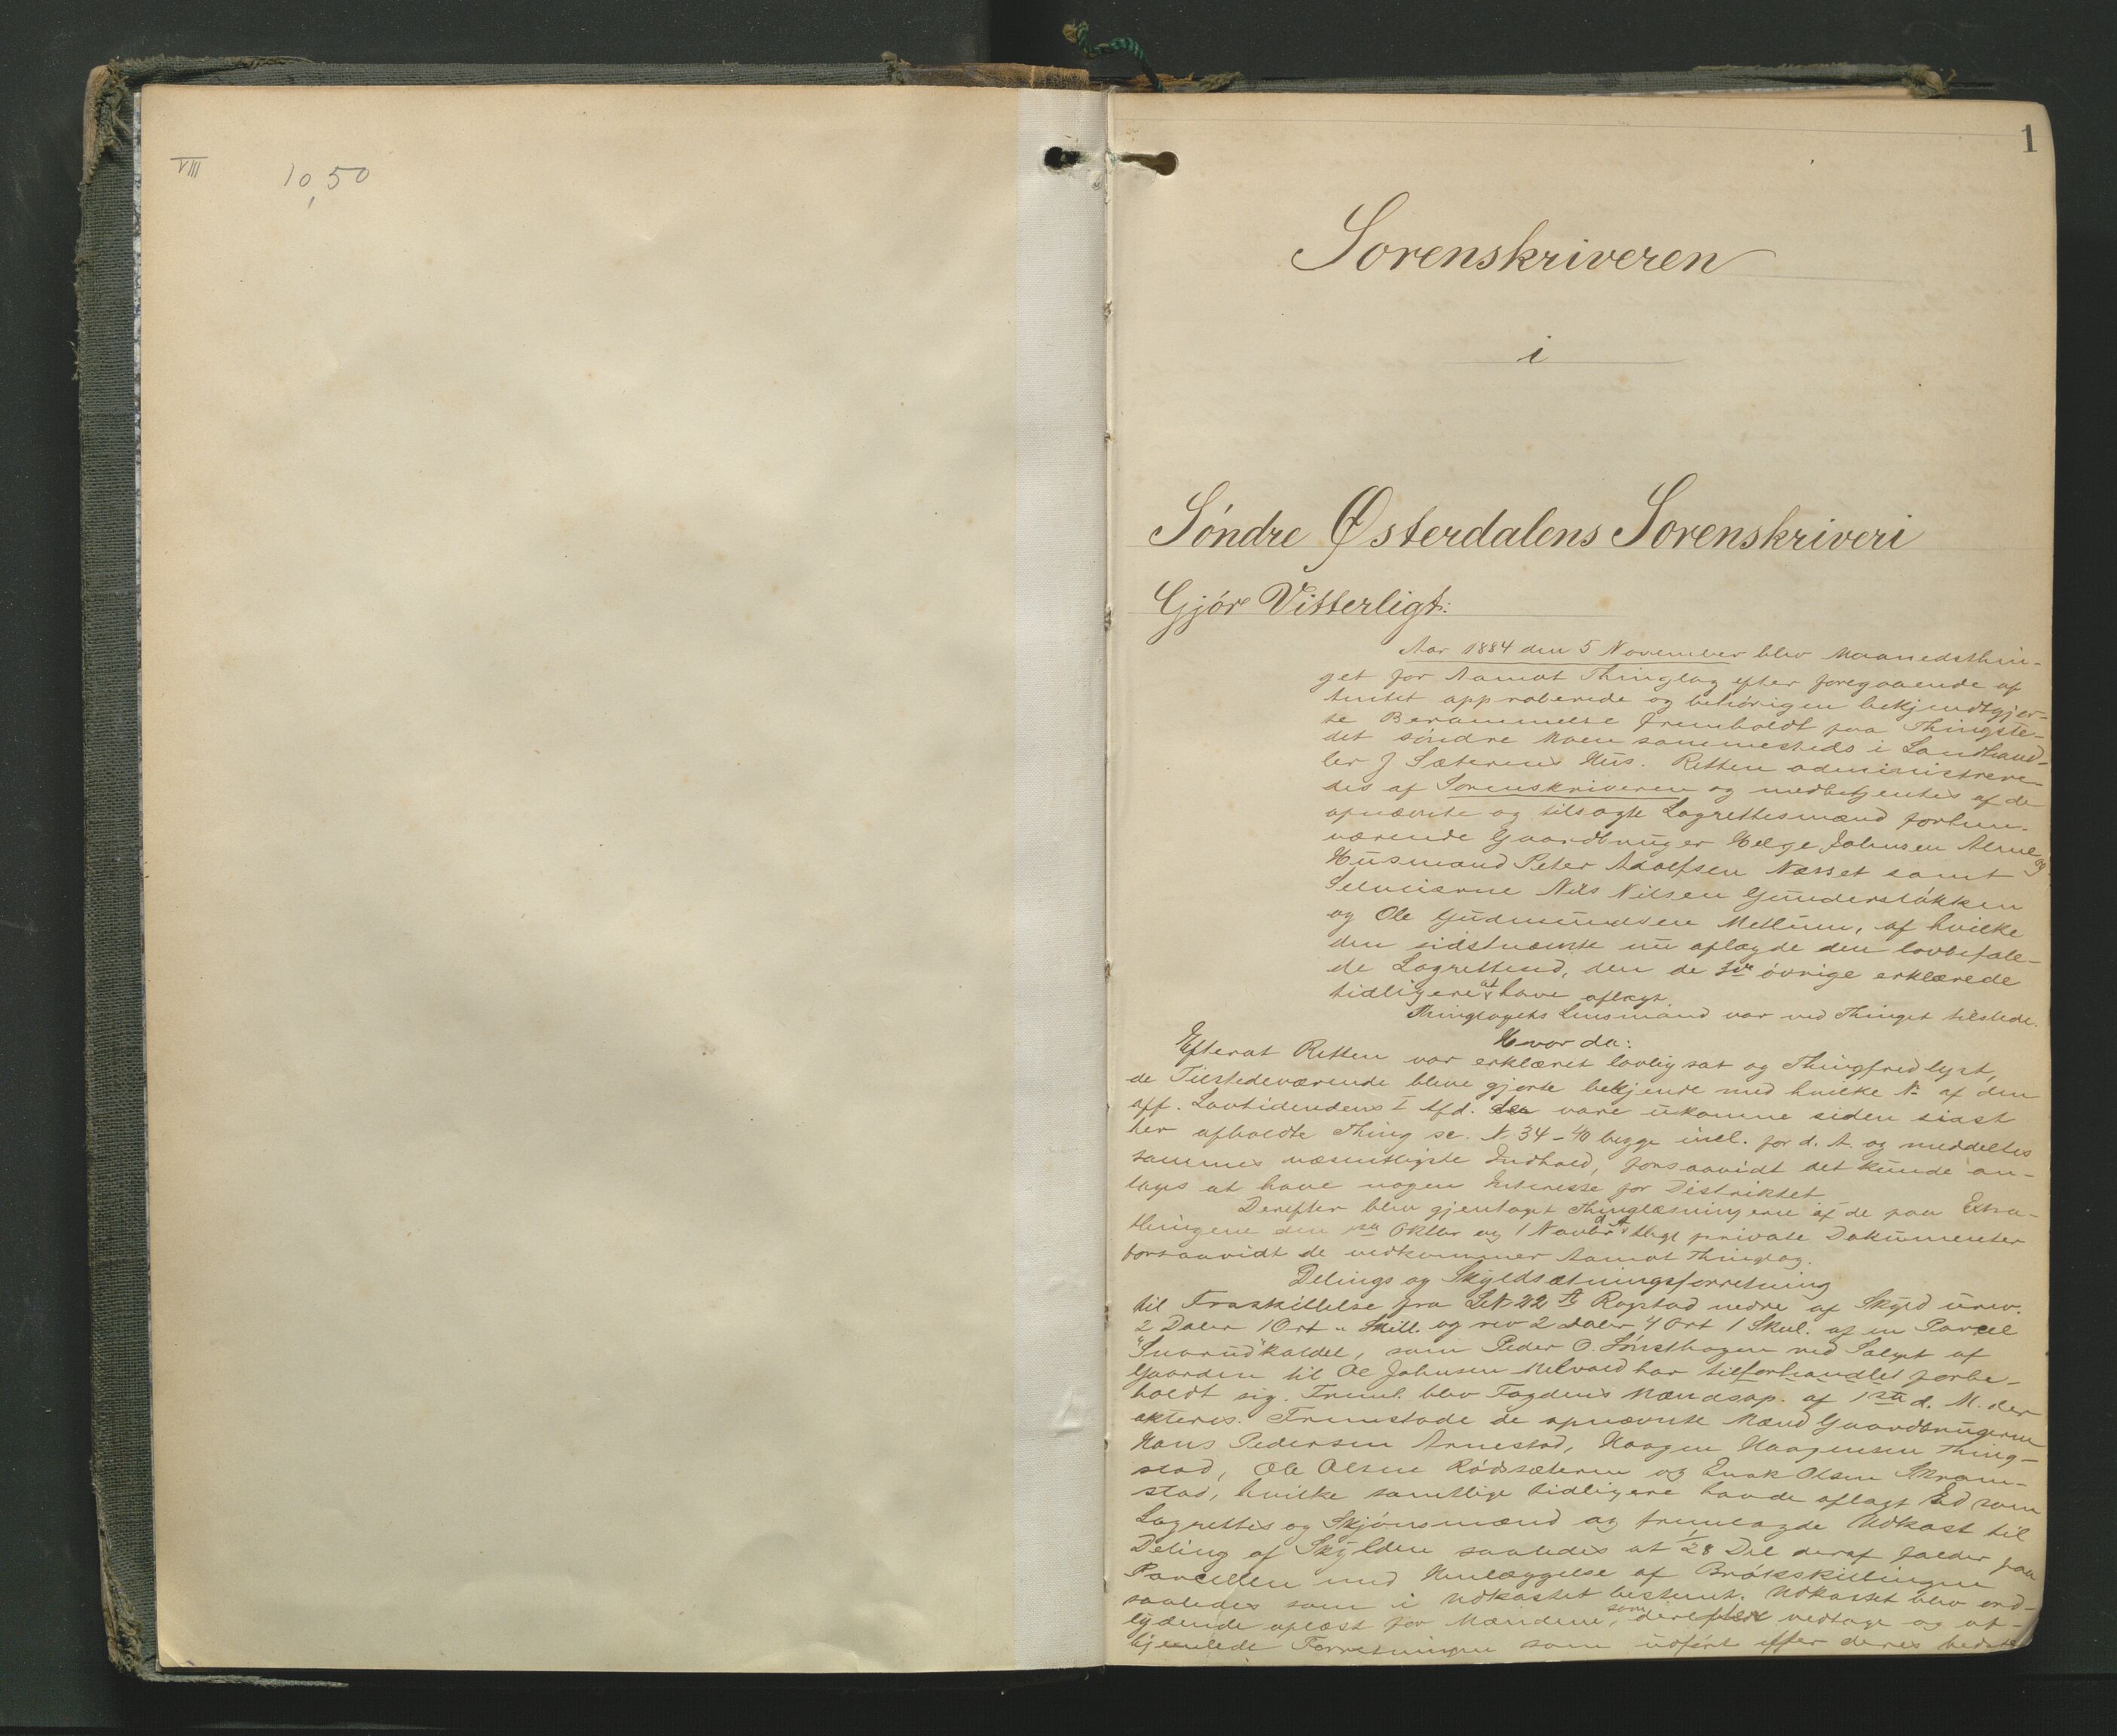 VIII
10,50
1
Sorenskriveren
i
Söndre Østerdalens Sorenskriveri
Gjör Vitterligt:
Aar 1884 den 5 November blev Maanedsthin-
get for Aamot Thinglag efter foregaaende af
Amtet approberede og behörigen bekjendtgjor-
te Berammelse fremholdt paa Thingste-
det söndre Moen sammesteds i Landhand-
ler J Sæterens Hus. Retten administrere-
des af Sorenskriveren og medbetjentes af de
opnævnte og tilsagte Lagrettesmænd forhen-
værende Gaardbruger Helge Johnsen Alme og
Husmand Peter Adolfsen Næsset samt
Selveierne Nils Nilsen Gunderslökken
og Ole Gudmundsen Mellum, af hvilke
den sidstnævnte nu aflagde den lovbefale-
de Lagrettesed, den de 3de övrige erklærede
tidligere at have aflagt.
Thinglagets Lensmand var ved Thinget tilstede.
Hvor da:
Efterat Retten var erklæret lovlig sat og Thingfred lyst,
de Tilstedeværende bleve gjorte bekjendt med hvilke No af den
aff. Lovtidendens I Afd. der vare ukomne siden sidst
her afholdte Thing sc. N. 34-40 begge incl. for d. A. og meddeltes
sammes væsentligste Indhold, forsaavidt det kunde an-
tages at have nogen Interesse for Distriktet.
Derefter blev gjentaget Thinglæsningerne af de paa Extra-
thingene den Oktbr og 1 Novbr d. A. private Dokumenter
forsaavidt de vedkommer Aamot Thinglag.
Delings og Skyldsætningsforretning
til Fraskillelse fra L.N. 22 Rogstad nedre af Skyld urev.
2 Daler 1 Ort " Skill. og rev 2 Daler 4 Ort 1 Skill. af en Parcel
"Snarud" kaldet, som Peder O. Sönsthagen ved Salget af
Gaarden til Ole Johnsen Melvold har tilforhandlet forbe-
holdt sig. Freml. blev Fogdens Mændsop. af d. M. der
akteres. Fremstode de opnævnte Mænd Gaardbrugerne
Hans Pedersen Arnestad, Haagen Haagensen Thing-
stad, Ole Olsen Rödsæteren og Enok Olsen Skram-
stad, hvilke samtlige tidligere havde aflagt Ed som
Lagrettes og Skjönsmænd og fremlagde Udkast til
Deling af Skylden saaledes at 1/28 Del deraf falder paa
Parcellen med Henlæggelse af Brökskillingen
saaledes som i Udkastet bestemt. Udkastet blev end-
lydende oplæst for Mændene, som vedtage og af-
hjemlede Forretningen som udfört efter deres bedste